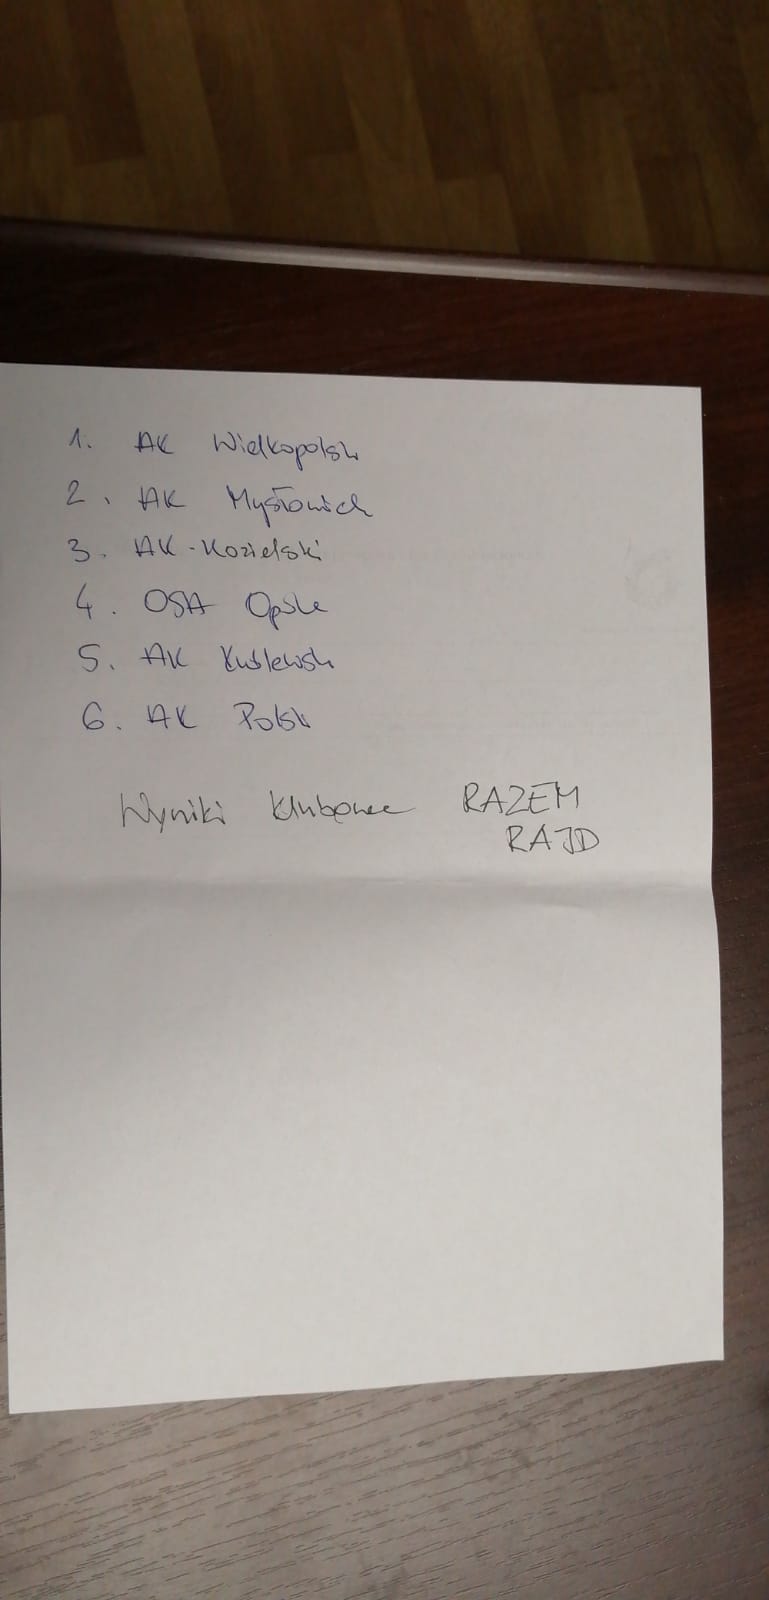 1. AK Wielkopolski
2. AK Mysłowicki
3. AK-Kozielski
4. OSA Opole
5. AK
6. AK Polski
Wyniki klubowe RAZEM
RAJD